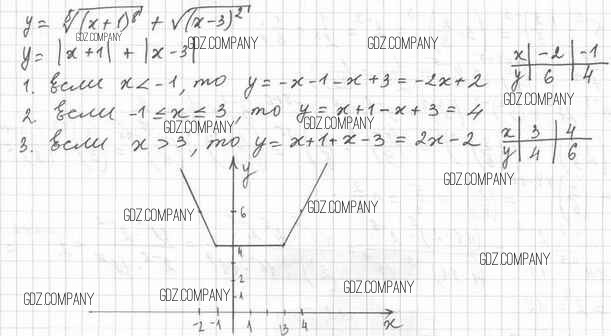 y = ⁸√(x+1)⁸ + √(x-3)²
GDZ.COMPANY
y = |x+1| + |x-3|
GDZ.COMPANY
GDZ.COMPANY
1. Если x < -1, то y = -x-1-x+3 = -2x+2
x | -2 | -1
y | 6 | 4
GDZ.COMPANY
2. Если -1 ≤ x ≤ 3, то y = x+1-x+3 = 4
GDZ.COMPANY
GDZ.COMPANY
3. Если x > 3, то y = x+1+x-3 = 2x-2
x | 3 | 4
y | 4 | 6
GDZ.COMPANY
y
6
GDZ.COMPANY
GDZ.COMPANY
4
GDZ.COMPANY
2
1
GDZ.COMPANY
GDZ.COMPANY
GDZ.COMPANY
-2 -1 1 3 4 x